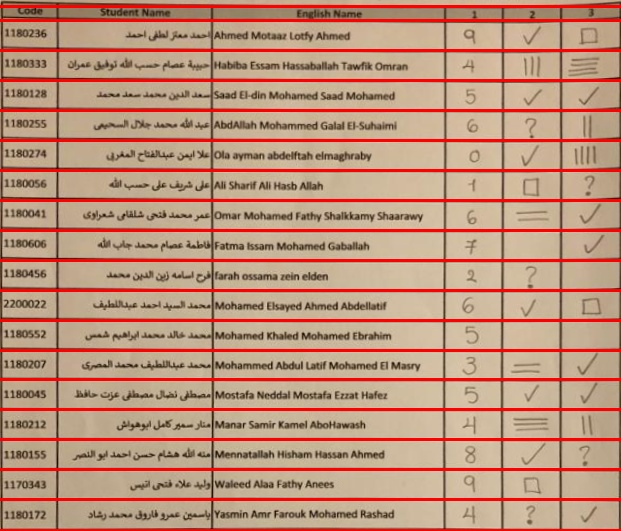 Code Student Name English Name 1 2 3
1180236 احمد معتز لطفى احمد Ahmed Motaaz Lotfy Ahmed 9 ✓ □
1180333 حبيبة عصام حسب الله توفيق عمران Habiba Essam Hassaballah Tawfik Omran 4 ||| ☰
1180128 سعد الدين محمد سعد محمد Saad El-din Mohamed Saad Mohamed 5 ✓ ✓
1180255 عبد الله محمد جلال السحيمى AbdAllah Mohammed Galal El-Suhaimi 6 ? ||
1180274 علا ايمن عبدالفتاح المغربي Ola ayman abdelftah elmaghraby 0 ✓ ||||
1180056 على شريف على حسب الله Ali Sharif Ali Hasb Allah 1 □ ?
1180041 عمر محمد فتحى شلقامى شعراوى Omar Mohamed Fathy Shalkkamy Shaarawy 6 = ✓
1180606 فاطمة عصام محمد جاب الله Fatma Issam Mohamed Gaballah 7 ✓
1180456 فرح اسامه زين الدين محمد farah ossama zein elden 2 ?
2200022 محمد السيد احمد عبداللطيف Mohamed Elsayed Ahmed Abdellatif 6 ✓ □
1180552 محمد خالد محمد ابراهيم شمس Mohamed Khaled Mohamed Ebrahim 5
1180207 محمد عبداللطيف محمد المصرى Mohammed Abdul Latif Mohamed El Masry 3 = ✓
1180045 مصطفى نضال مصطفى عزت حافظ Mostafa Neddal Mostafa Ezzat Hafez 5 ✓ ✓
1180212 منار سمير كامل ابوهواش Manar Samir Kamel AboHawash 4 ☰ ||
1180155 منه الله هشام حسن احمد ابو النصر Mennatallah Hisham Hassan Ahmed 8 ✓ ?
1170343 وليد علاء فتحى انيس Waleed Alaa Fathy Anees 9 □
1180172 ياسمين عمرو فاروق محمد رشاد Yasmin Amr Farouk Mohamed Rashad 4 ? ✓